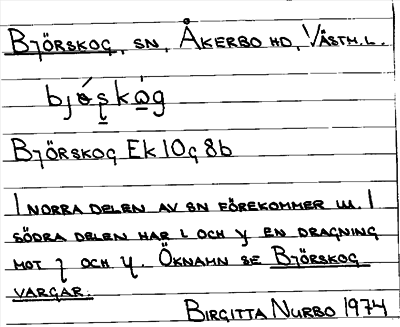 Björskog, sn, Åkerbo hd, Västm.l.
bjǿʂkòg
Björskog Ek 10g 8b
I norra delen av sn förekommer ɯ. I
södra delen har ɩ och y en dragning
mot ʅ och ʯ. Öknamn se Björskog
vargar.
Birgitta Nurbo 1974